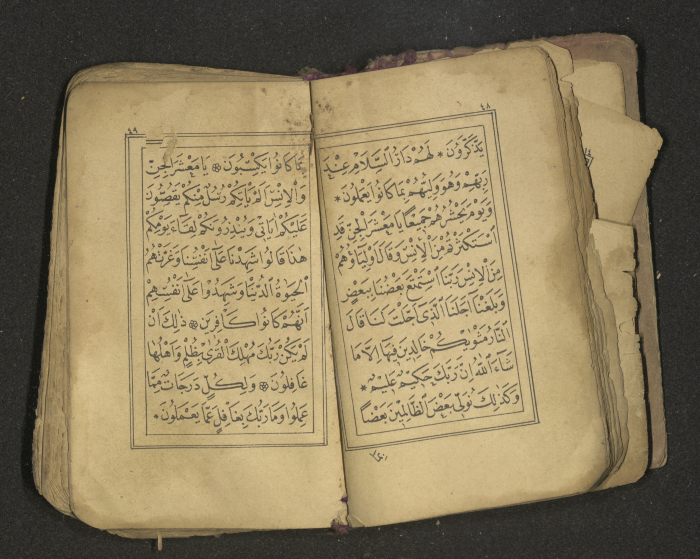 ٤٨
يَذَّكَّرُونَ * لَهُمْ دَارُ السَّلَامِ عِنْدَ
رَبِّهِمْ وَهُوَ وَلِيُّهُمْ بِمَا كَانُوا يَعْمَلُونَ *
وَيَوْمَ يَحْشُرُهُمْ جَمِيعًا يَا مَعْشَرَ الْجِنِّ قَدِ
اسْتَكْثَرْتُمْ مِنَ الْاِنْسِ وَقَالَ اَوْلِيَاؤُهُمْ
مِنَ الْاِنْسِ رَبَّنَا اسْتَمْتَعَ بَعْضُنَا بِبَعْضٍ
وَبَلَغْنَا اَجَلَنَا الَّذِى اَجَّلْتَ لَنَا قَالَ
النَّارُ مَثْوٰيكُمْ خَالِدِينَ فِيهَا اِلَّا مَا
شَاءَ اللّٰهُ اِنَّ رَبَّكَ حَكِيمٌ عَلِيمٌ *
وَكَذٰلِكَ نُوَلِّى بَعْضَ الظَّالِمِينَ بَعْضًا
بِمَا
٤٩
بِمَا كَانُوا يَكْسِبُونَ * يَا مَعْشَرَ الْجِنِّ
وَالْاِنْسِ اَلَمْ يَاْتِكُمْ رُسُلٌ مِنْكُمْ يَقُصُّونَ
عَلَيْكُمْ اٰيَاتِى وَيُنْذِرُونَكُمْ لِقَاءَ يَوْمِكُمْ
هٰذَا قَالُوا شَهِدْنَا عَلٰى اَنْفُسِنَا وَغَرَّتْهُمُ
الْحَيٰوةُ الدُّنْيَا وَشَهِدُوا عَلٰى اَنْفُسِهِمْ
اَنَّهُمْ كَانُوا كَافِرِينَ * ذٰلِكَ اَنْ
لَمْ يَكُنْ رَبُّكَ مُهْلِكَ الْقُرٰى بِظُلْمٍ وَاَهْلُهَا
غَافِلُونَ * وَلِكُلٍّ دَرَجَاتٌ مِمَّا
عَمِلُوا وَمَا رَبُّكَ بِغَافِلٍ عَمَّا يَعْمَلُونَ *